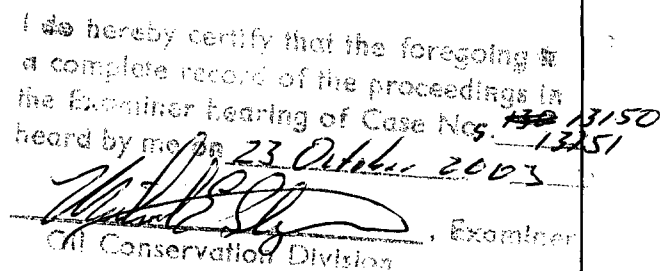 I do hereby certify that the foregoing is
a complete record of the proceedings in
the Examiner hearing of Case Nos. 13150
13151
heard by me on 23 October 2003
, Examiner
Oil Conservation Division